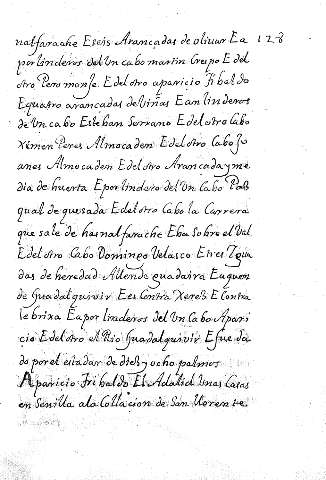 nalfarache E seis Arancadas de oliuar E a 128
por linderos del Un cabo martin Crespo E del
otro Pero monje. E del otro aparicio fribaldo
E quatro arancadas de Viñas E an linderos
de Un cabo Esteban Serrano E del otro Cabo
Ximen Peres Almocaden E del otro Cabo Ju
anes Almocaden E del otro Arancada y me
dia de huerta E por lindero del Un Cabo Pas
qual de quesada E del otro Cabo la Carrera
que sale de hasnalfarache E ba sobre el Val
E del otro Cabo Domingo Velasco E tres Yuga
das de heredad Allende guadaira E aquem
de Guadalquivir E es Contra Xeres E Contra
lebrixa E a por linderos del Un Cabo Apari
cio E del otro el Rio Guadalquivir E fue da
do por el estadar de dies y ocho palmos
Aparicio fribaldo El Adalid Unas Casas
en Seuilla a la Collacion de San Llorente.